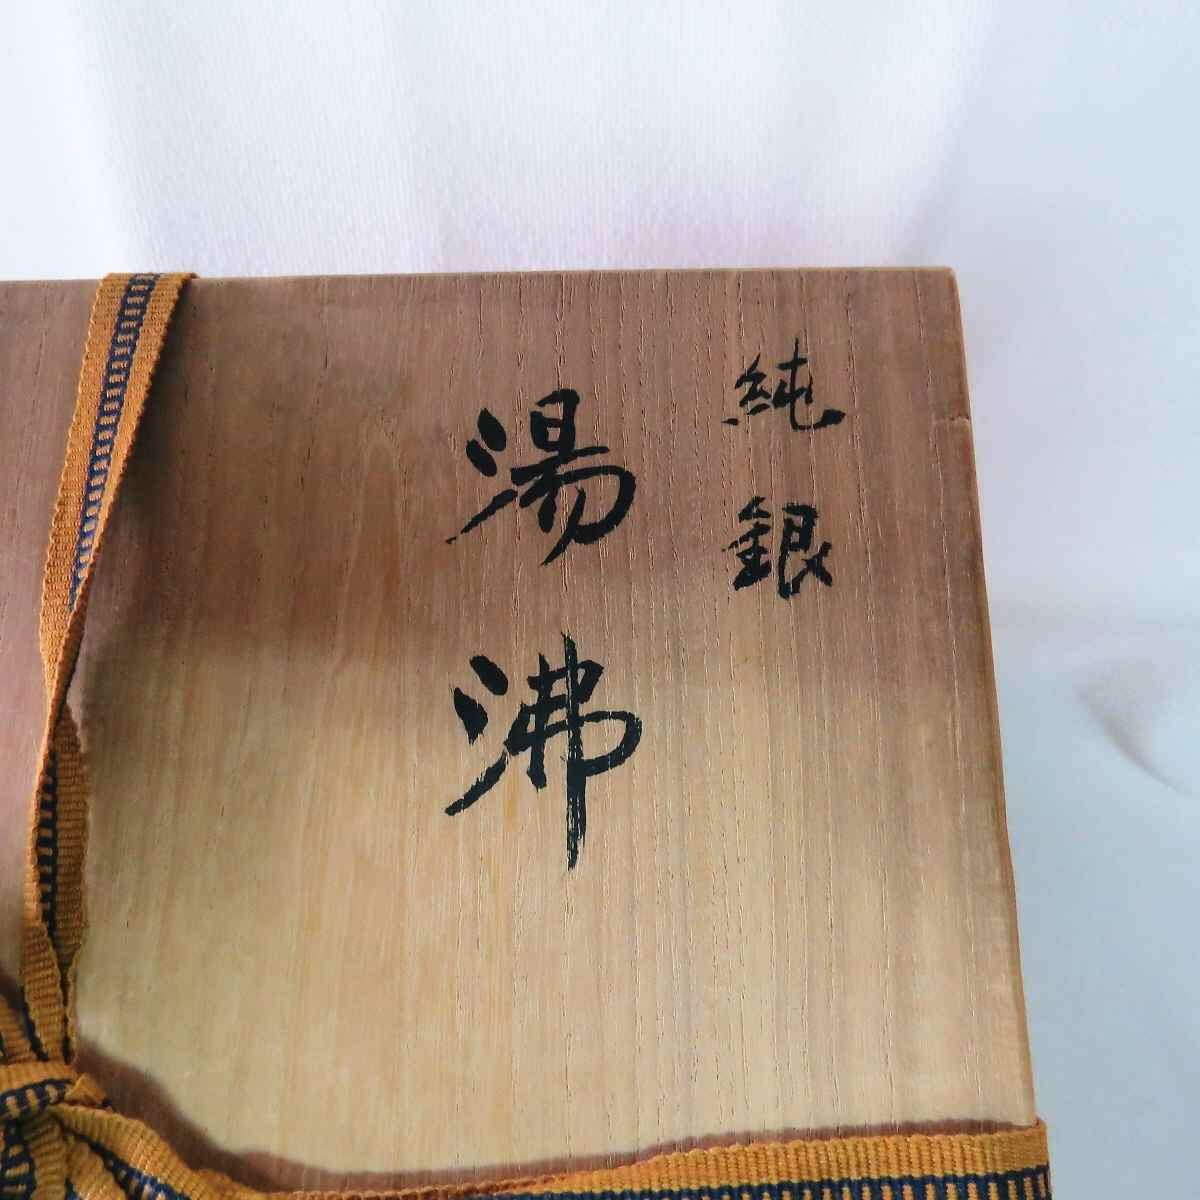 純銀
湯沸